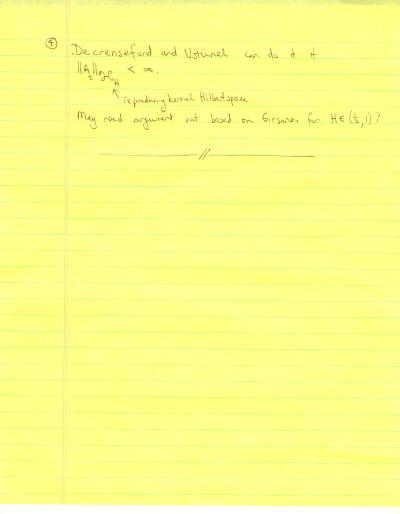 ④ Decrensefond and Ustunel can do it if
||A_z||_{ℋ_H} < ∞.
↑ reproducing kernel Hilbert space
May need argument not based on Girsanov for H ∈ (½, 1) ?